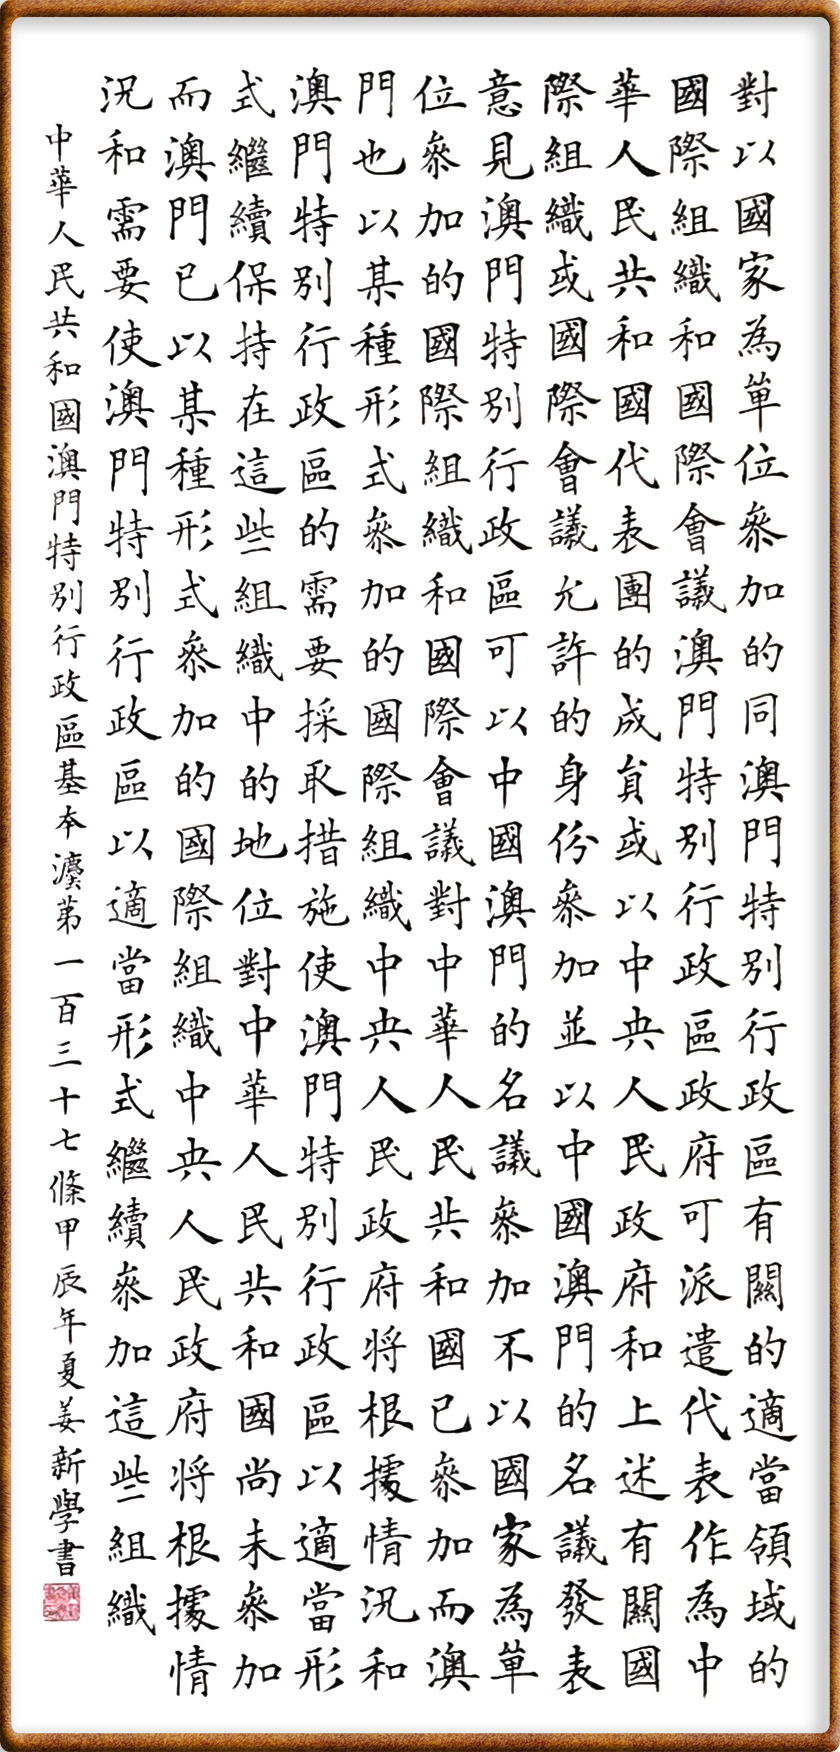 對以國家為單位參加的同澳門特別行政區有關的適當領域的
國際組織和國際會議澳門特別行政區政府可派遣代表作為中
華人民共和國代表團的成員或以中央人民政府和上述有關國
際組織或國際會議允許的身份參加並以中國澳門的名議發表
意見澳門特別行政區可以中國澳門的名議參加不以國家為單
位參加的國際組織和國際會議對中華人民共和國已參加而澳
門也以某種形式參加的國際組織中央人民政府將根據情況和
澳門特別行政區的需要採取措施使澳門特別行政區以適當形
式繼續保持在這些組織中的地位對中華人民共和國尚未參加
而澳門已以某種形式參加的國際組織中央人民政府將根據情
況和需要使澳門特別行政區以適當形式繼續參加這些組織
中華人民共和國澳門特別行政區基本灋第一百三十七條甲辰年夏姜新學書